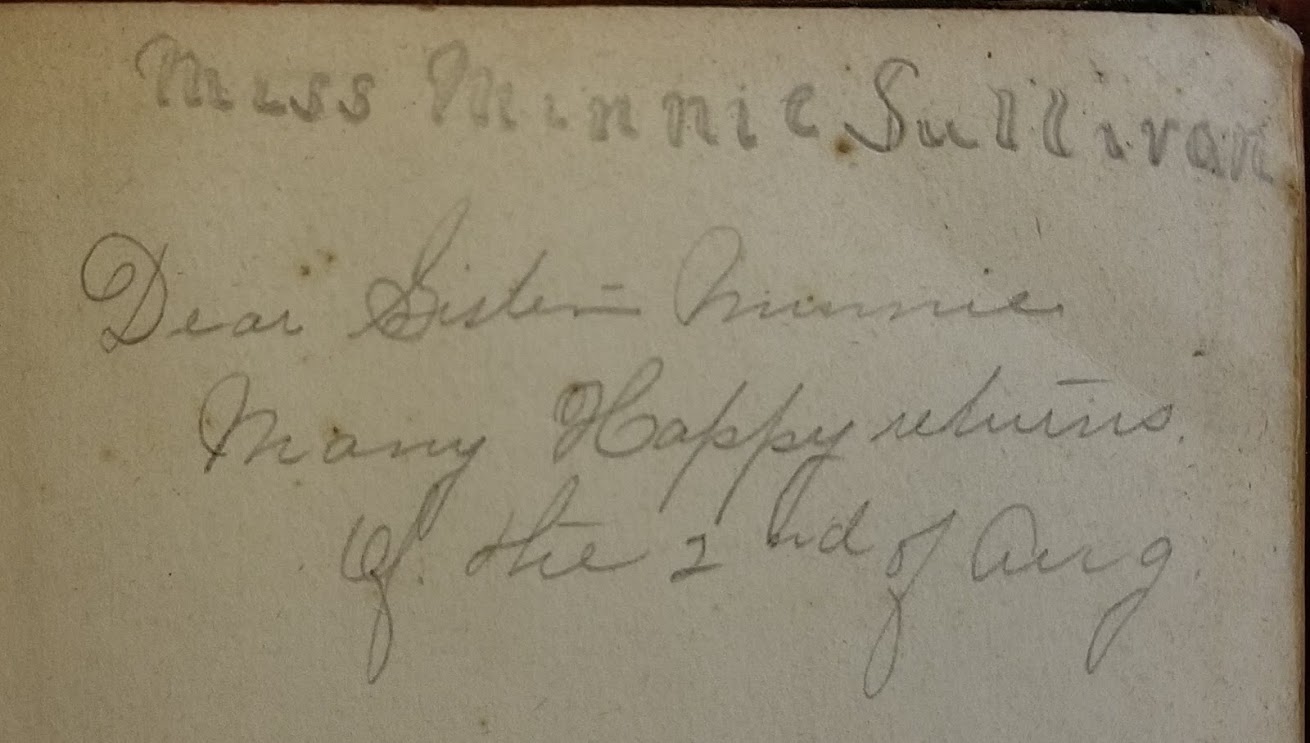 Miss Minnie Sullivan
Dear Sister Minnie
Many Happy returns.
of the 2nd of Aug.